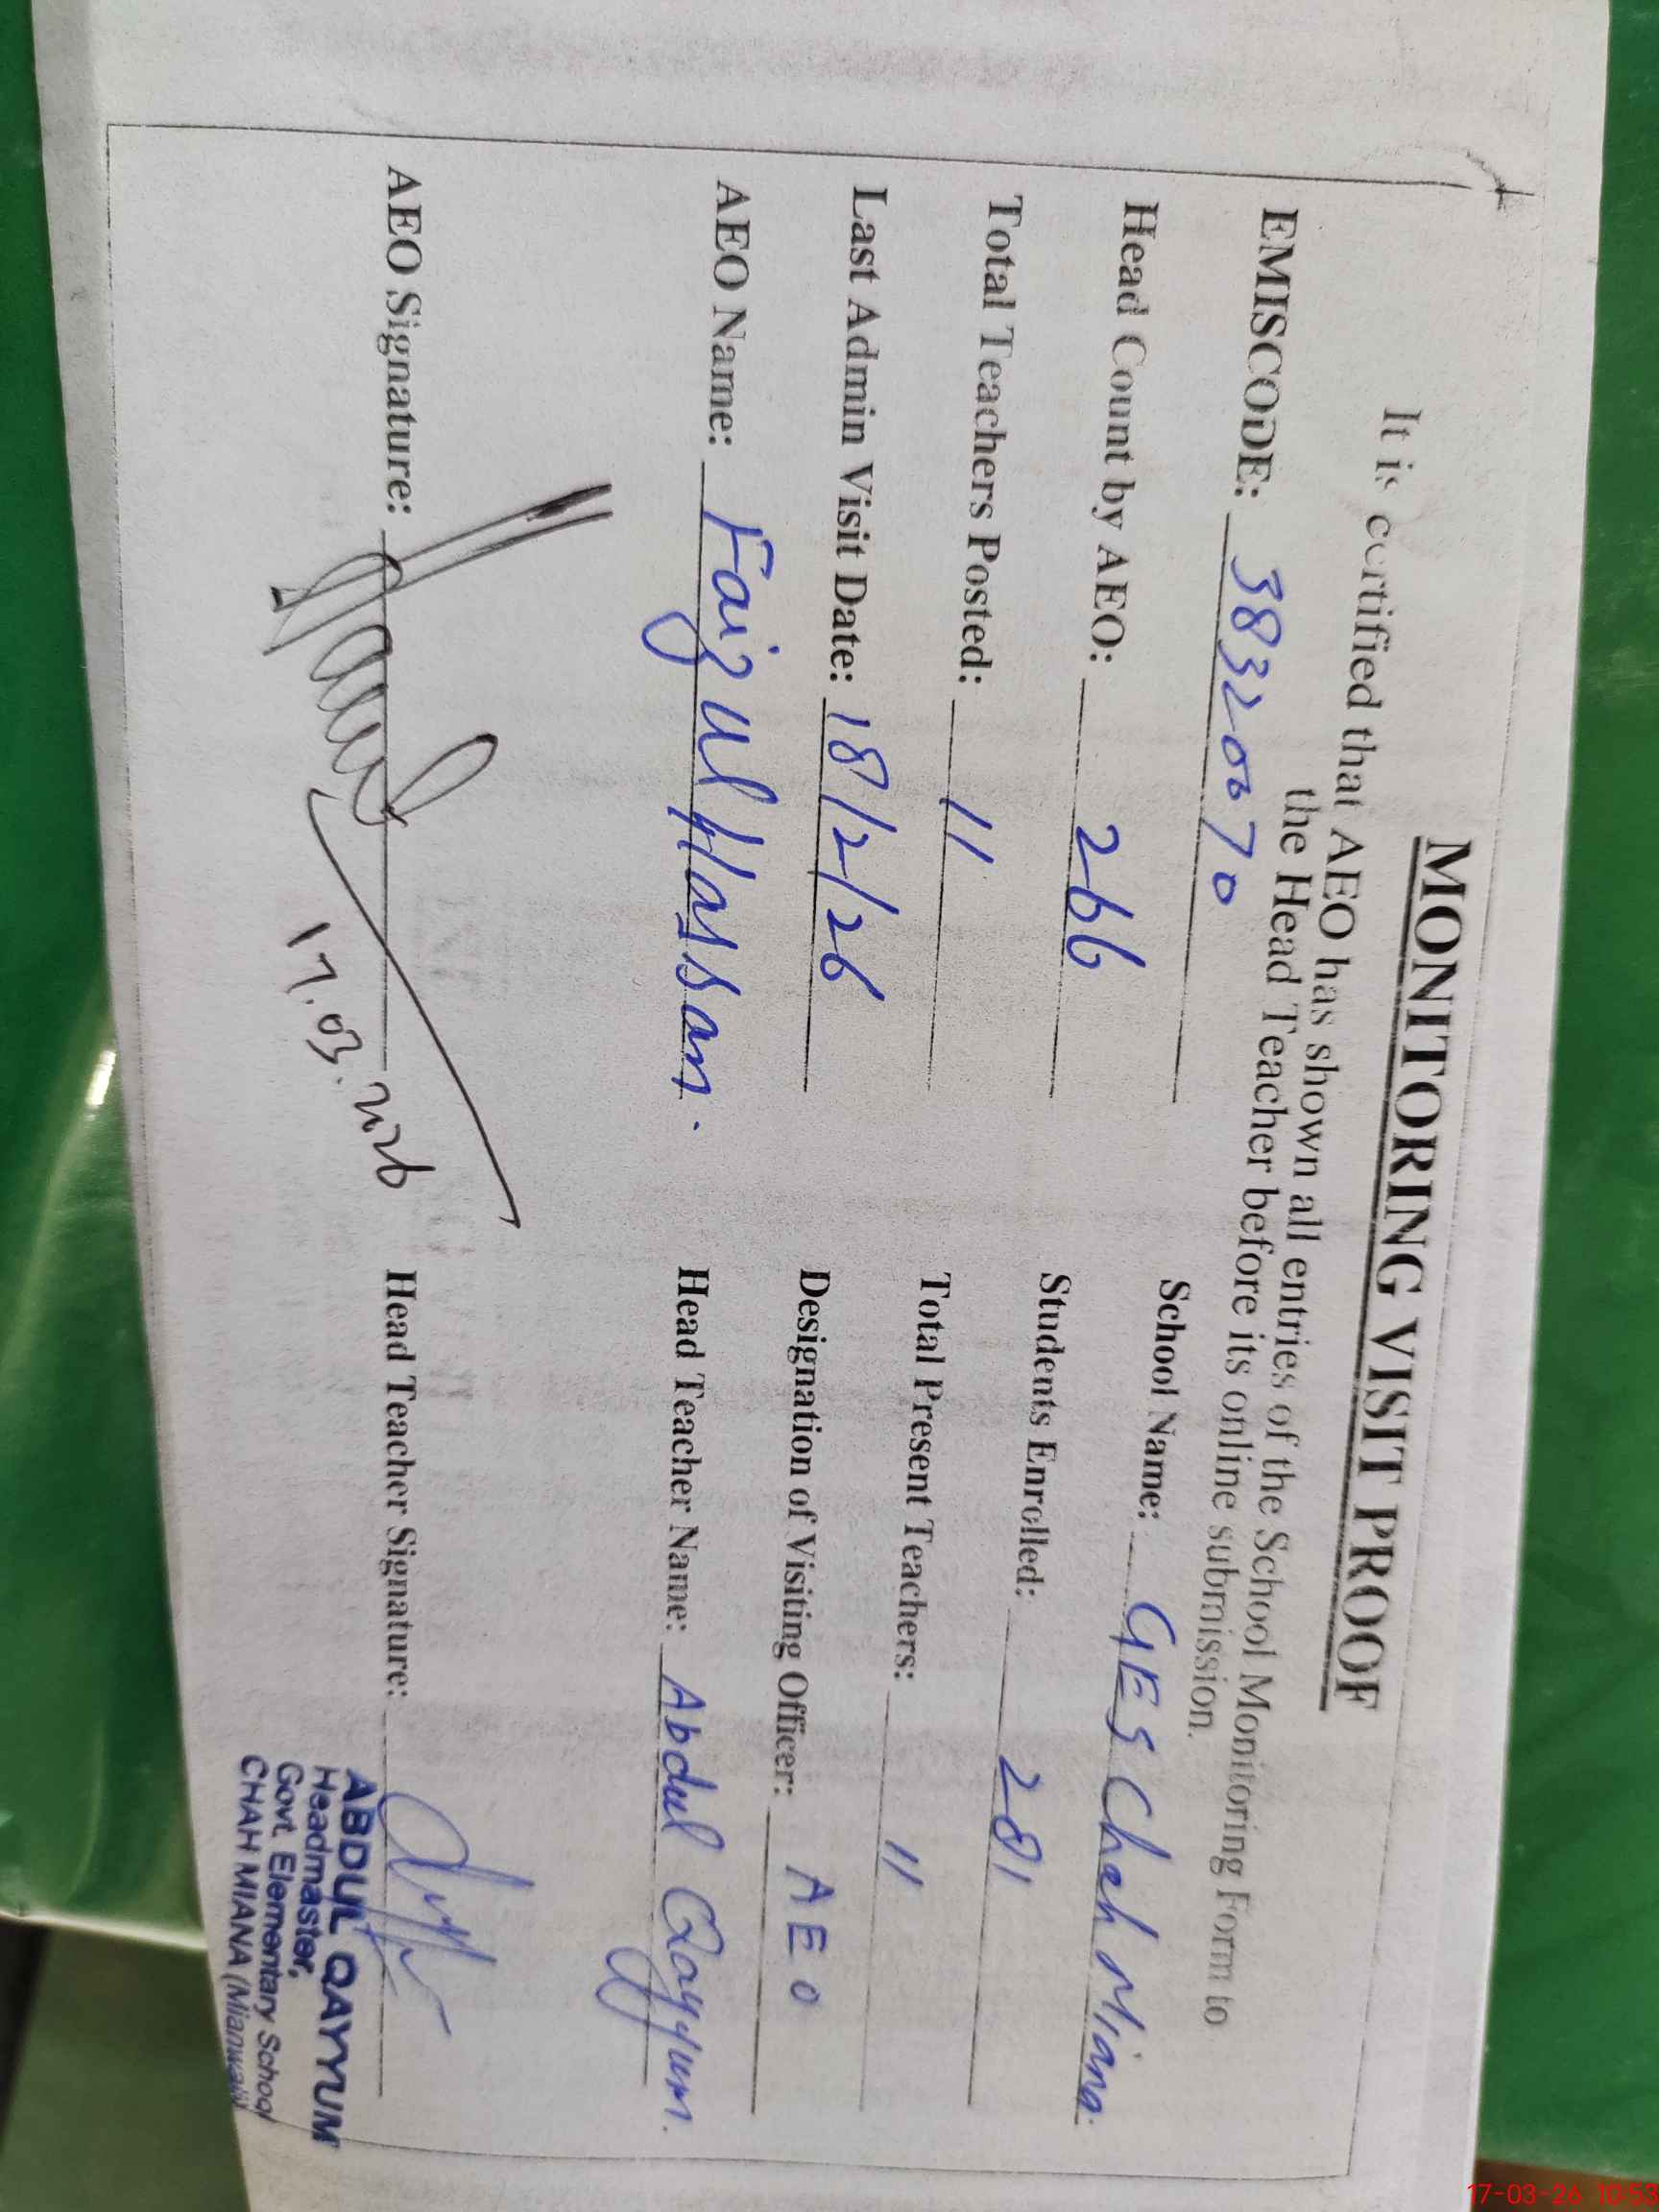 MONITORING VISIT PROOF
It is certified that AEO has shown all entries of the School Monitoring Form to
the Head Teacher before its online submission.
EMISCODE: 38320070 School Name: GES Chah Miana.
Head Count by AEO: 266 Students Enrolled: 281
Total Teachers Posted: 11 Total Present Teachers: 11
Last Admin Visit Date: 18/2/26 Designation of Visiting Officer: AEO
AEO Name: Faiz ul Hassan. Head Teacher Name: Abdul Qayyum.
AEO Signature: Head Teacher Signature:
17.03.2026
ABDUL QAYYUM
Headmaster,
Govt. Elementary School
CHAH MIANA (Mianwali)
17-03-26 10:53